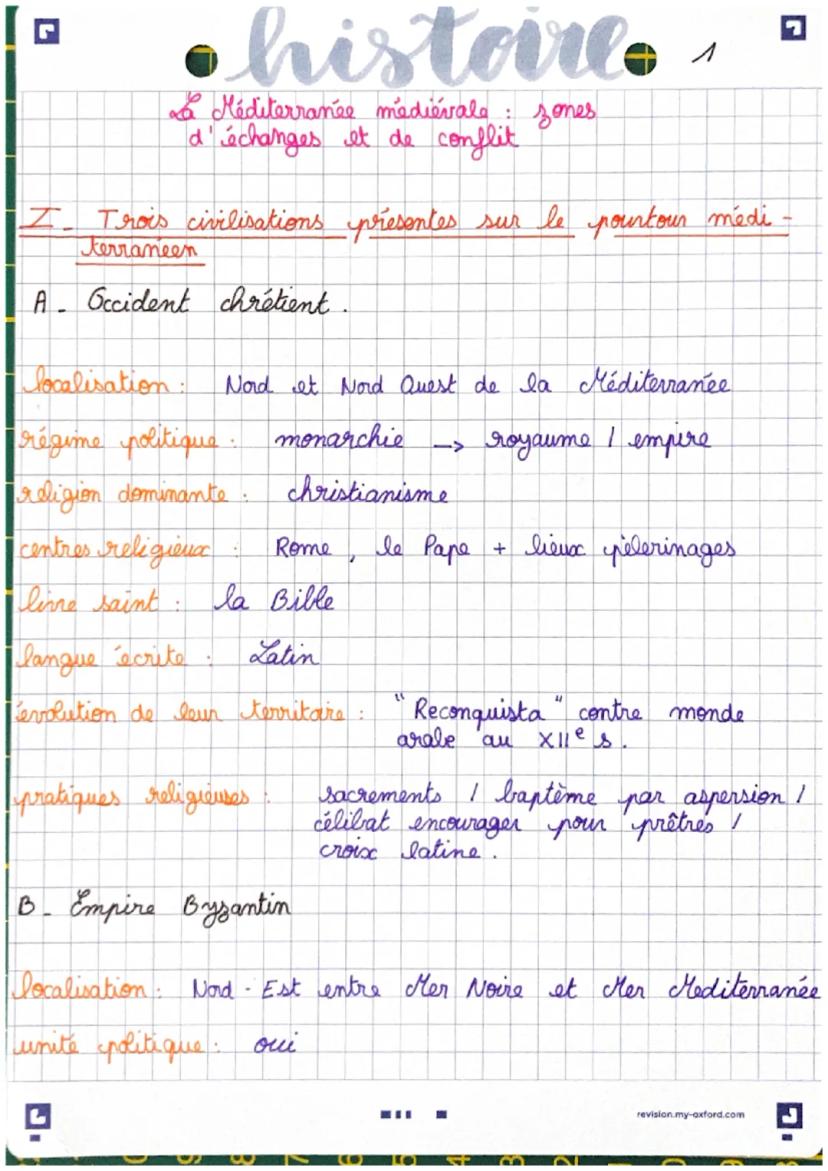 histoire 1
La Méditerranée médiévale : zones
d'échanges et de conflit
I - Trois civilisations présentes sur le pourtour médi -
terranéen
A - Occident chrétient .
localisation : Nord et Nord Ouest de la Méditerranée
régime politique : monarchie → royaume / empire
religion dominante : christianisme
centres religieux : Rome , le Pape + lieux pèlerinages
livre saint : la Bible
langue écrite : Latin
évolution de leur territoire : "Reconquista" contre monde
arabe au XIIe s .
pratiques religieuses : sacrements / baptème par aspersion /
célibat encourager pour prêtres /
croix latine .
B - Empire Byzantin
localisation : Nord - Est entre Mer Noire et Mer Mediterranée
unité politique : oui
revision.my-oxford.com